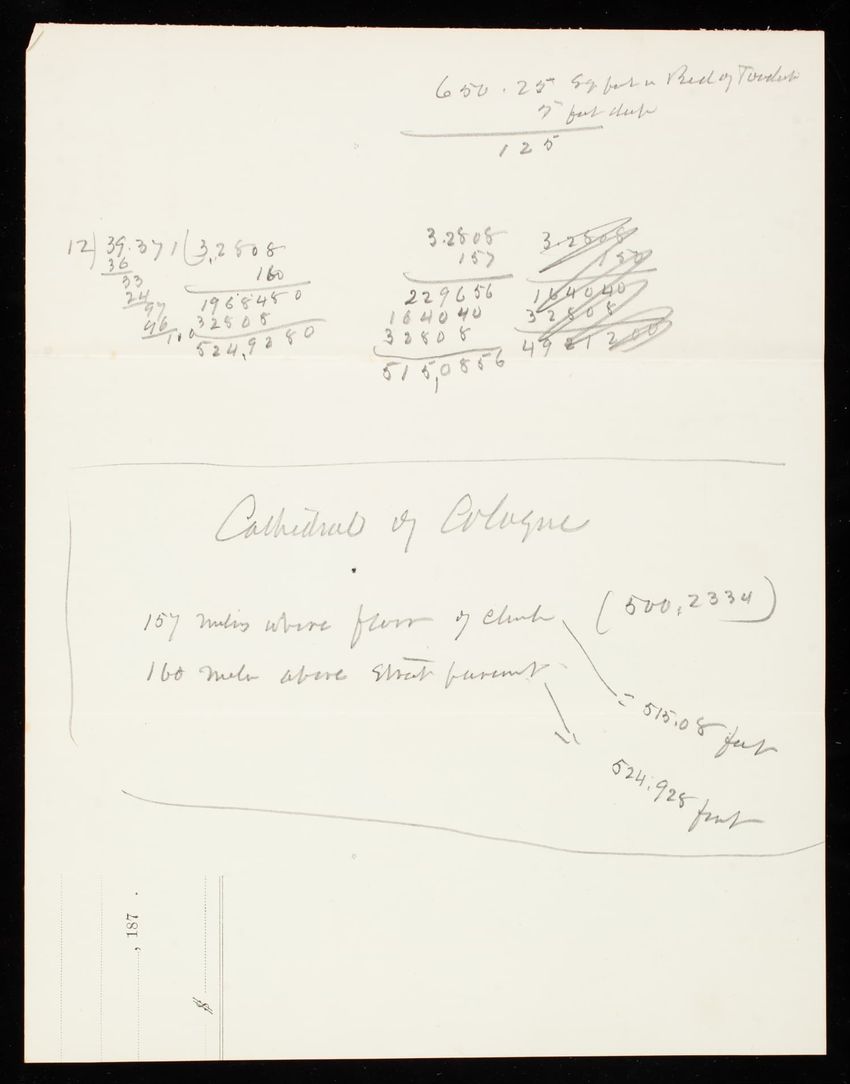 650.25 Sq feet in Bed of
5 feet deep
125
12) 39.371 ( 3,2808
36
160
33
24
1968480
97
32808
96
524,9280
100
3.2808
157
229656
164040
32808
515,0856
3.2808
150
164040
32808
4921200
Cathedral of Cologne
157 metres above floor of church (500,2334)
160 metres above Street pavement
= 515.08 feet
= 524.928 feet
, 187 .
$